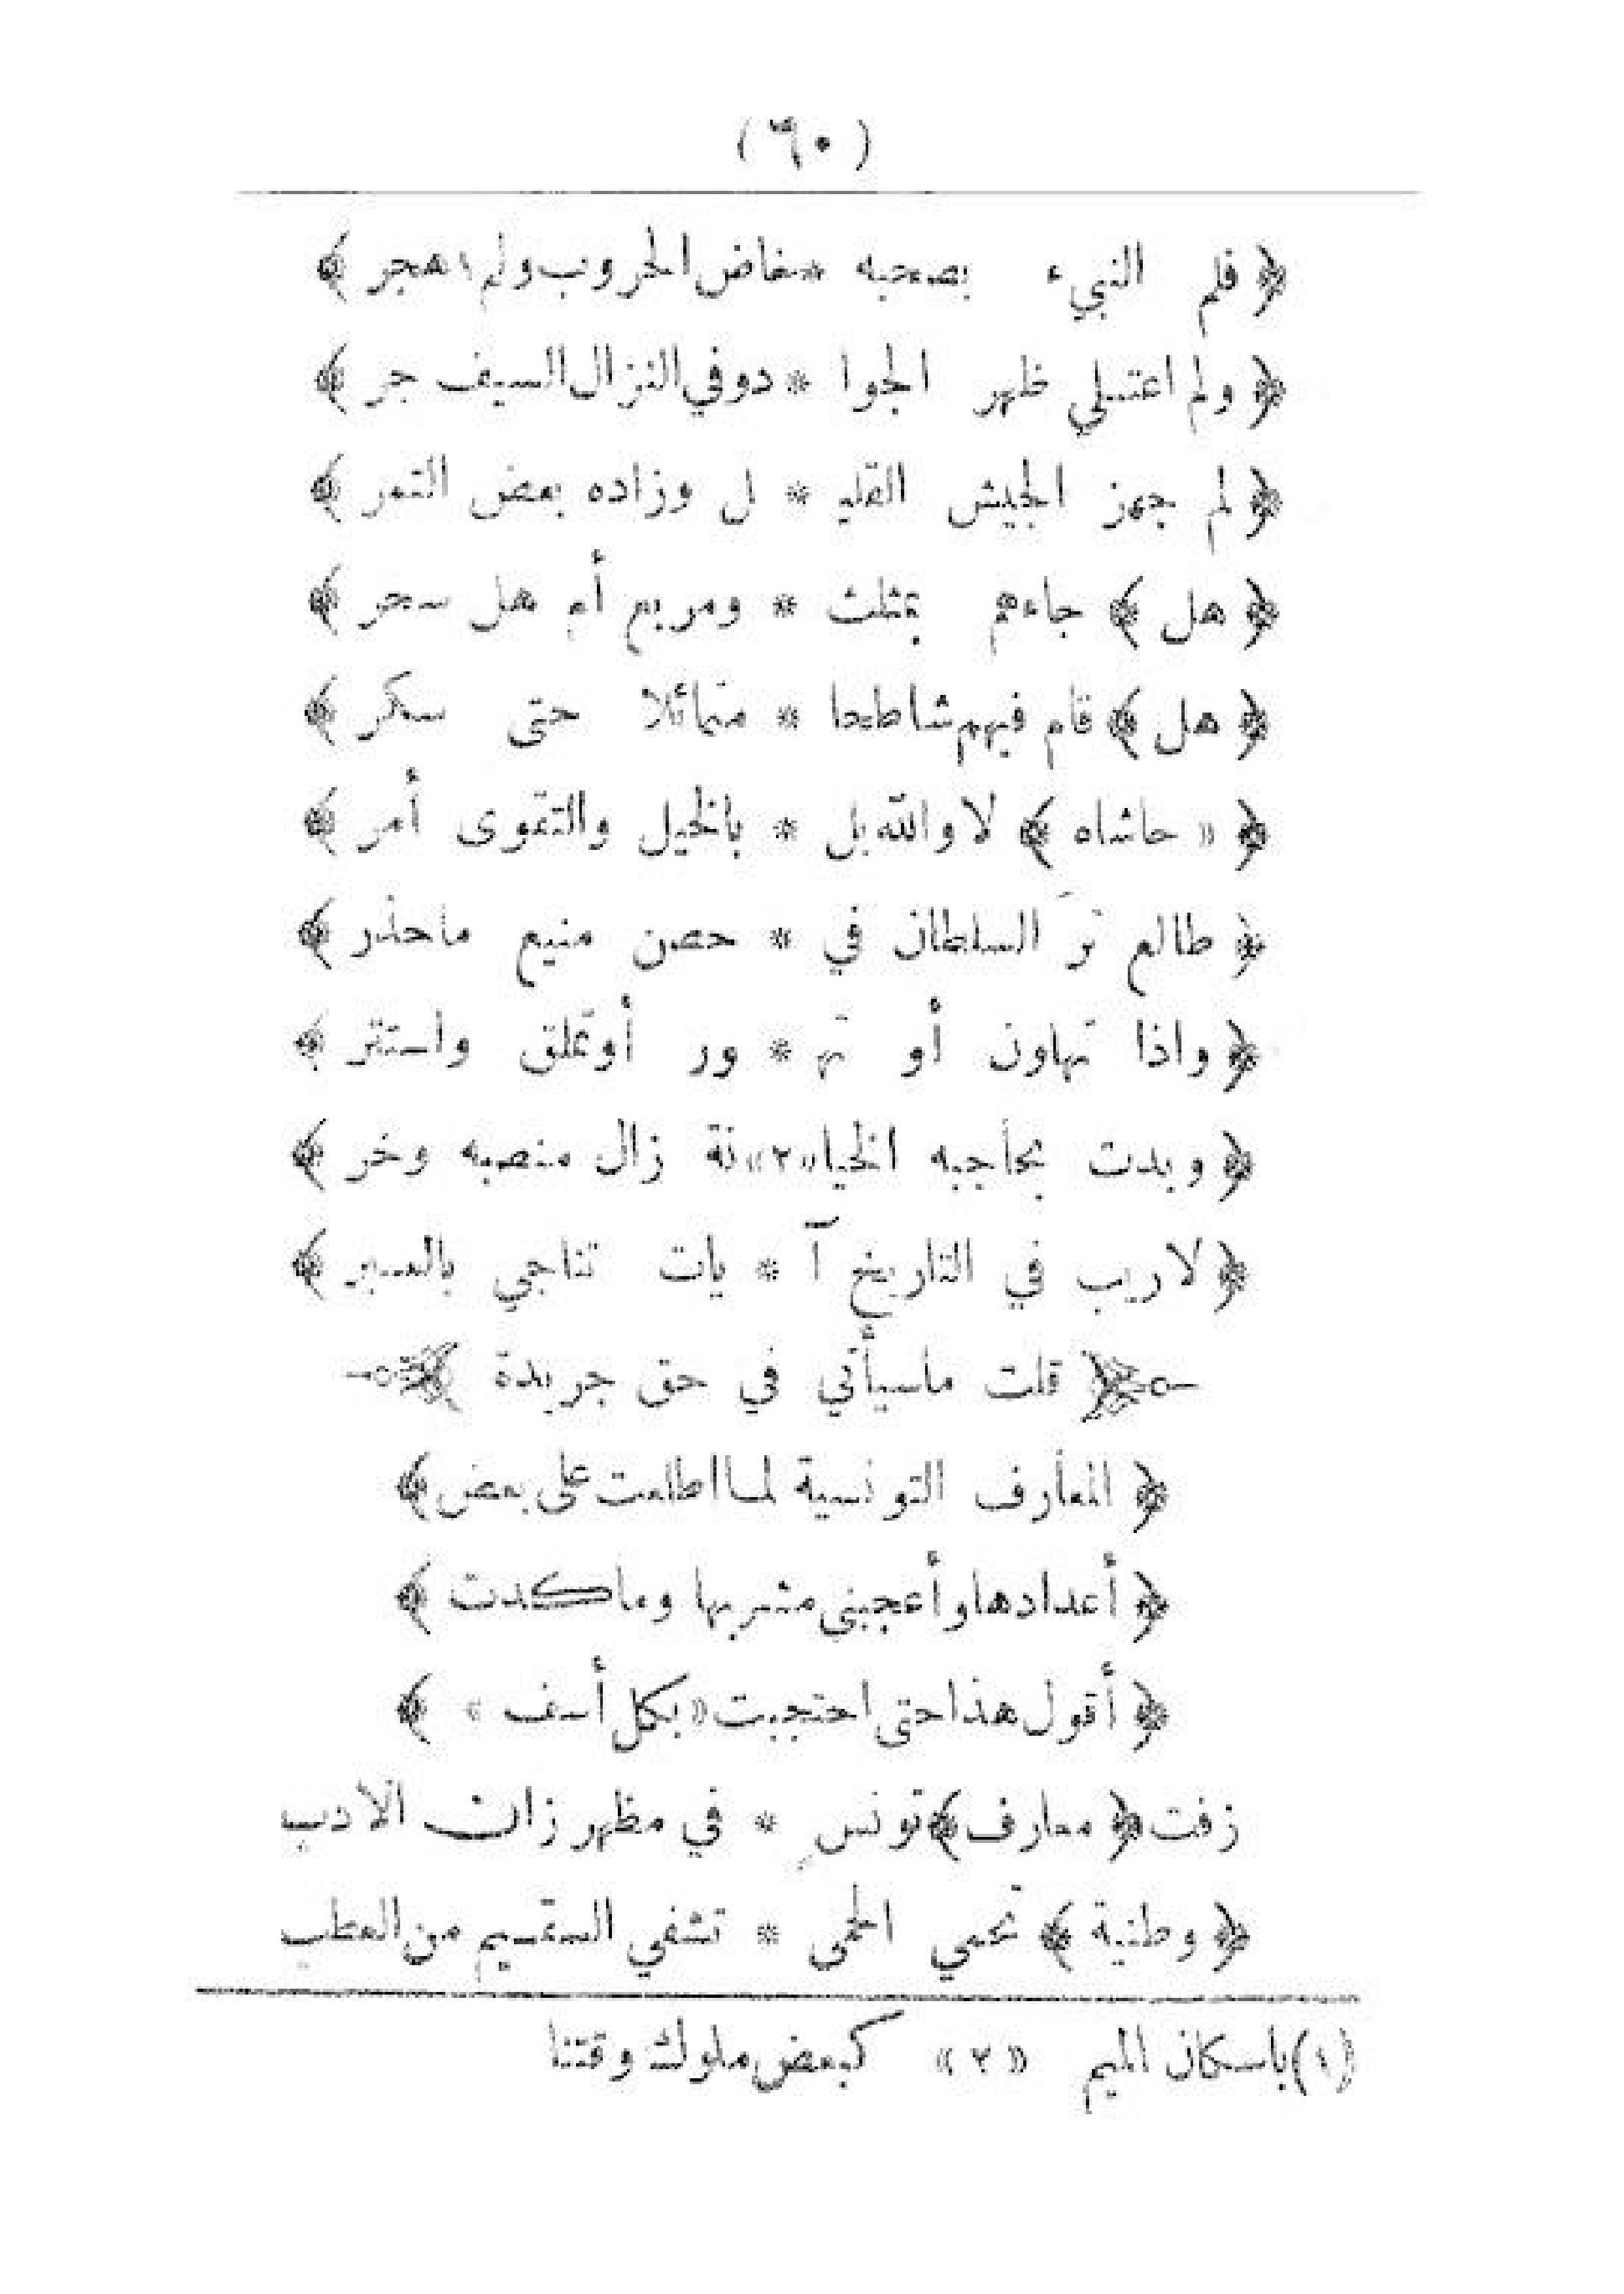 (٦٠)
﴿ فلم النبيء بصحبه * خاض الحروب ولم ١ هجر ﴾
﴿ ولم اعتلي ظهر الجوا * دوفي النزال السيف جر ﴾
﴿ لم جهز الجيش القليـ * ل وزاده بعض التمر ﴾
﴿ هل ﴾ جاءهم بمثلث * ومربع أم هل سحر ﴾
﴿ هل ﴾ قام فيهم شاطحا * متمائلا حتى سكر ﴾
﴿ « حاشاه ﴾ لا والله بل * بالخيل والتقوى أمر ﴾
﴿ طالع ترَ السلطان في * حصن منيع ماحذر ﴾
﴿ واذا تهاون أو تهـ * ور أو تملق واستتر ﴾
﴿ وبدت بحاجبه الخيا «٢» نة زال منصبه وخر ﴾
﴿ لاريب في التاريخ آ * يات تناجي بالعبر ﴾
﴿ قلت ماسيأتي في حق جريدة ﴾
﴿ المعارف التونسية لما اطلعت على بعض ﴾
﴿ أعدادها وأعجبني مشربها وما كدت ﴾
﴿ أقول هذا حتى احتجبت « بكل أسف » ﴾
زفت ﴿ معارف ﴾ تونسٍ * في مظهر زان الأدب
﴿ وطنية ﴾ تحمي الحمى * تشفي السقيم من العطب
(١) باسكان الميم «٢» كبعض ملوك وقتنا